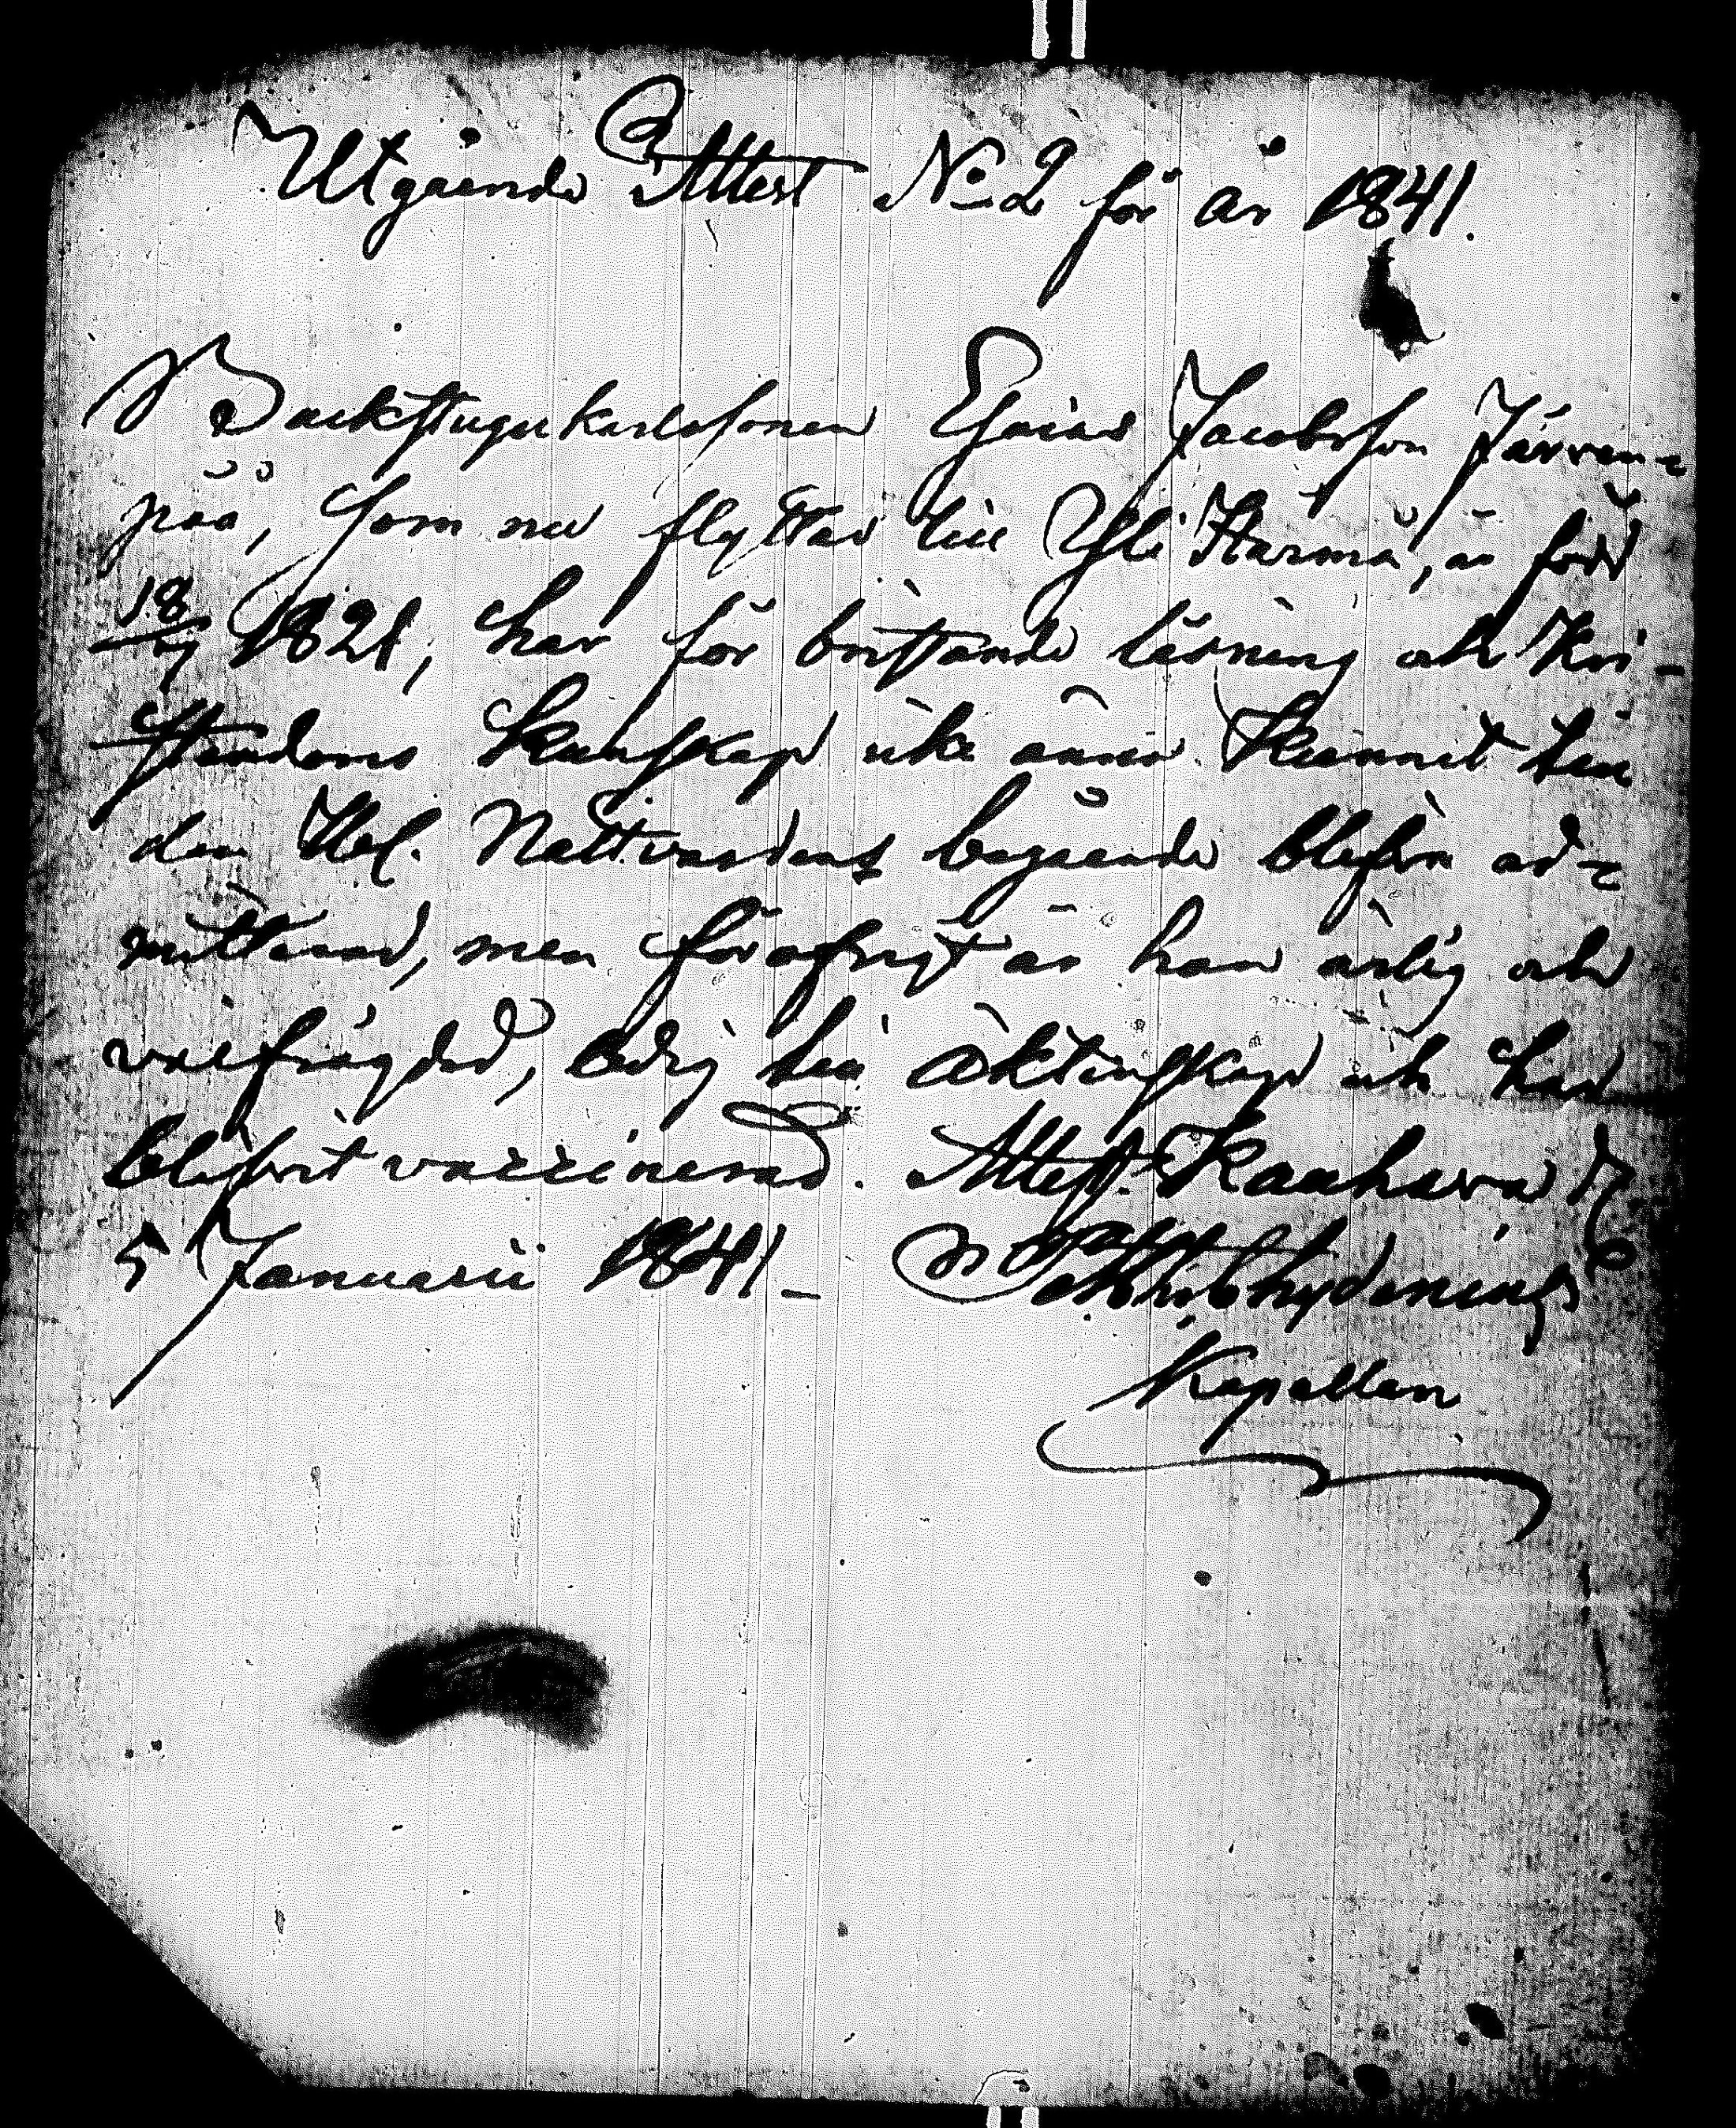 Utgående Attest No 2 för år 1841.
Backstugukarlssonen Esaias Jacobsson Järven-
pää, som nu flyttar till Ylihärmä, är född
18/7 1821, har för bristande läsning och Kri-
stendoms kunskap icke ännu kunnat till
den Hel. Nattvardens begående blifva ad-
mitterad, men för öfrigt är han ärlig och
välfrägdad, ledig till äktenskap och har
blifvit vaccinerad. Attest. Kauhava d
5 Januarii 1841 -
Kapellan